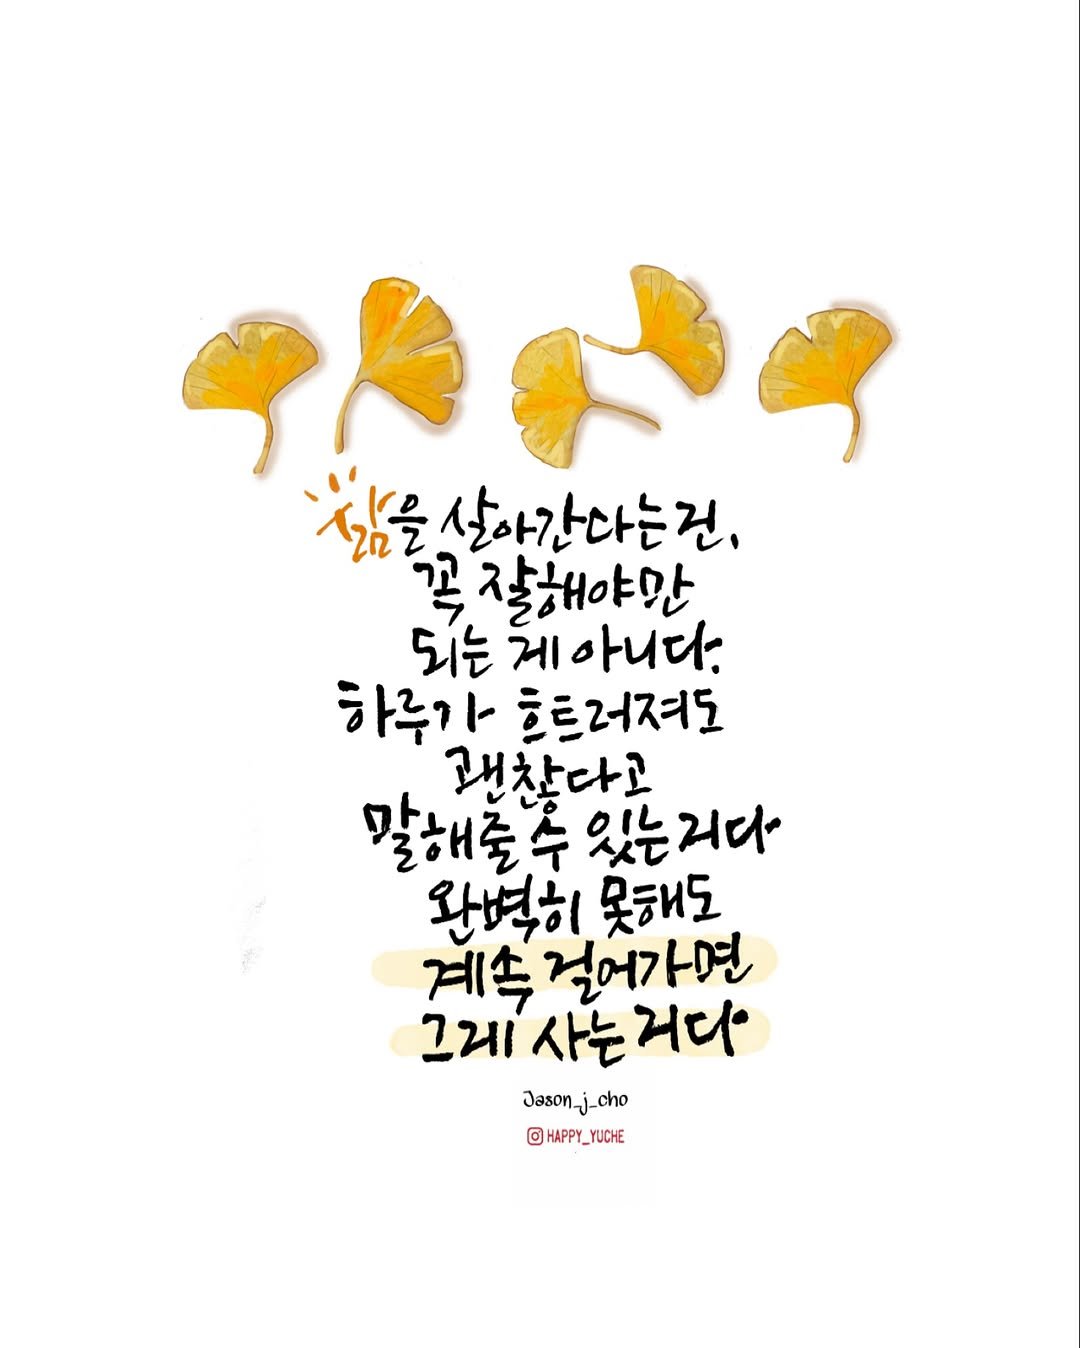 삶을 살아간다는건,
꼭 잘해야만
되는 게 아니다.
하루가 흐트러져도
괜찮다고
말해줄 수 있는거다
완벽히 못해도
계속 걸어가면
그게 사는거다
Jason_j_cho
HAPPY_YUCHE